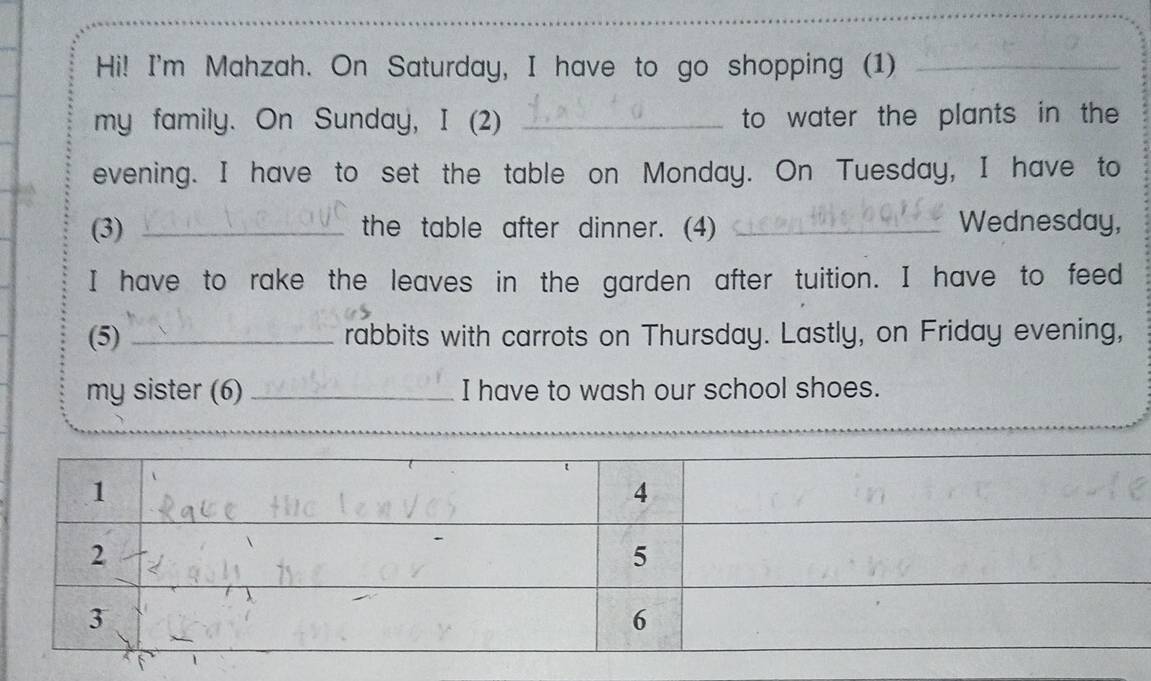 Hi! I'm Mahzah. On Saturday, I have to go shopping (1) ____________
my family. On Sunday, I (2) ____________ to water the plants in the
evening. I have to set the table on Monday. On Tuesday, I have to
(3) ____________ the table after dinner. (4) ____________ Wednesday,
I have to rake the leaves in the garden after tuition. I have to feed
(5) ____________ rabbits with carrots on Thursday. Lastly, on Friday evening,
my sister (6) ____________ I have to wash our school shoes.
1 the leaves 4 in
2 5
3 6